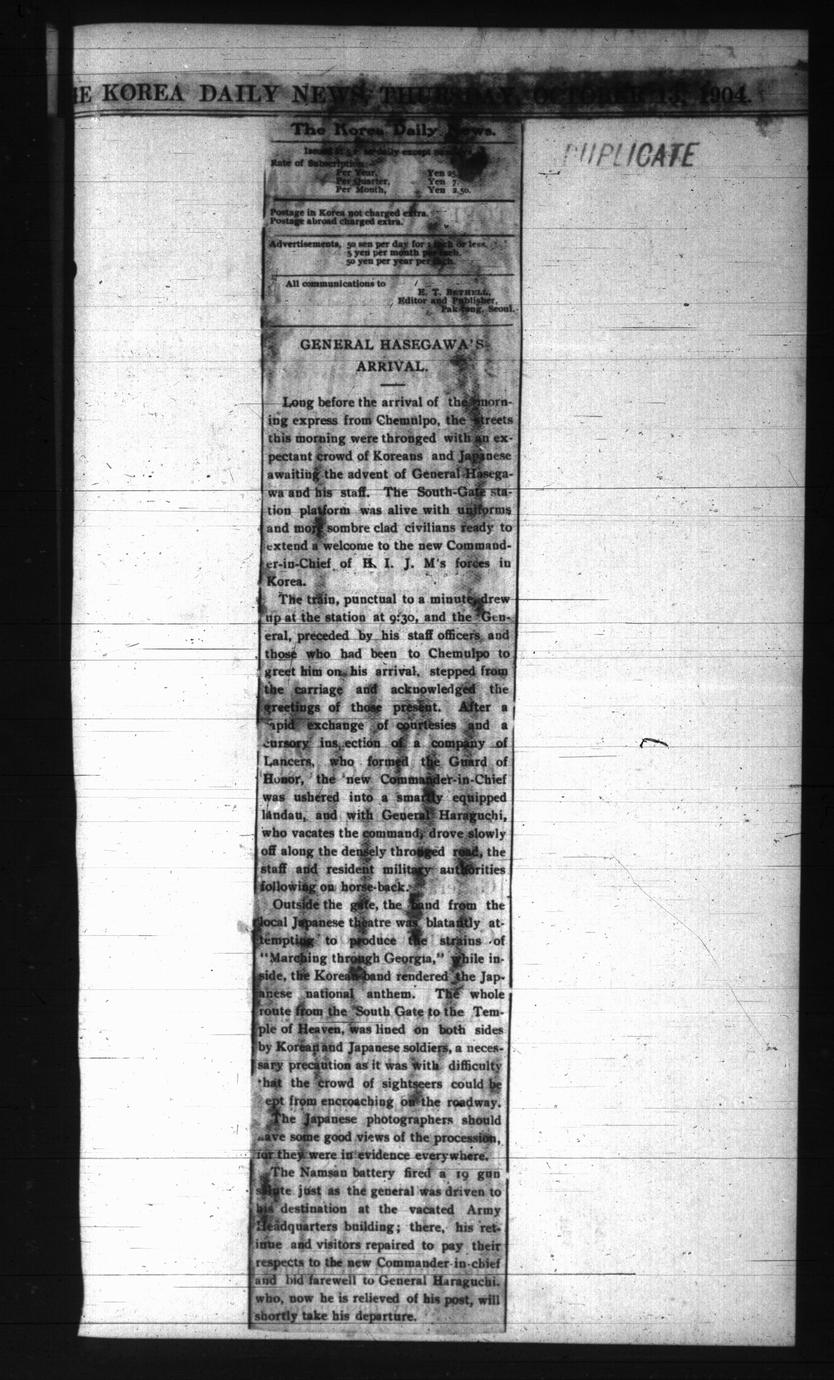 KOREA DAILY NEWS, THURSDAY, OCTOBER 13, 1904.
DUPLICATE
The Korea Daily News.
daily except
Rate of Subscription
Per Year, Yen 25.
Per Quarter, Yen 7.
Per Month, Yen 2.50.
Postage in Korea not charged extra.
Postage abroad charged extra.
Advertisements, 50 sen per day for 1 inch or less.
5 yen per month per inch.
50 yen per year per inch.
All communications to
E. T. BETHELL,
Editor and Publisher,
Seoul.
GENERAL HASEGAWA'S
ARRIVAL.
Long before the arrival of the morn-
ing express from Chemulpo, the streets
this morning were thronged with an ex-
pectant crowd of Koreans and Japanese
awaiting the advent of General Hasega-
wa and his staff. The South-Gate sta-
tion platform was alive with uniforms
and more sombre clad civilians ready to
extend a welcome to the new Command-
er-in-Chief of H. I. J. M's forces in
Korea.
The train, punctual to a minute, drew
up at the station at 9:30, and the Gen-
eral, preceded by his staff officers and
those who had been to Chemulpo to
greet him on his arrival, stepped from
the carriage and acknowledged the
greetings of those present. After a
rapid exchange of courtesies and a
cursory inspection of a company of
Lancers, who formed the Guard of
Honor, the new Commander-in-Chief
was ushered into a smartly equipped
landau, and with General Haraguchi,
who vacates the command, drove slowly
off along the densely thronged road, the
staff and resident military authorities
following on horse-back.
Outside the gate, the band from the
local Japanese theatre was blatantly at-
tempting to produce the strains of
"Marching through Georgia," while in-
side, the Korean band rendered the Jap-
anese national anthem. The whole
route from the South Gate to the Tem-
ple of Heaven, was lined on both sides
by Korean and Japanese soldiers, a neces-
sary precaution as it was with difficulty
that the crowd of sightseers could be
kept from encroaching on the roadway.
The Japanese photographers should
have some good views of the procession,
for they were in evidence everywhere.
The Namsan battery fired a 19 gun
salute just as the general was driven to
his destination at the vacated Army
Headquarters building; there, his ret-
inue and visitors repaired to pay their
respects to the new Commander-in-chief
and bid farewell to General Haraguchi.
who, now he is relieved of his post, will
shortly take his departure.